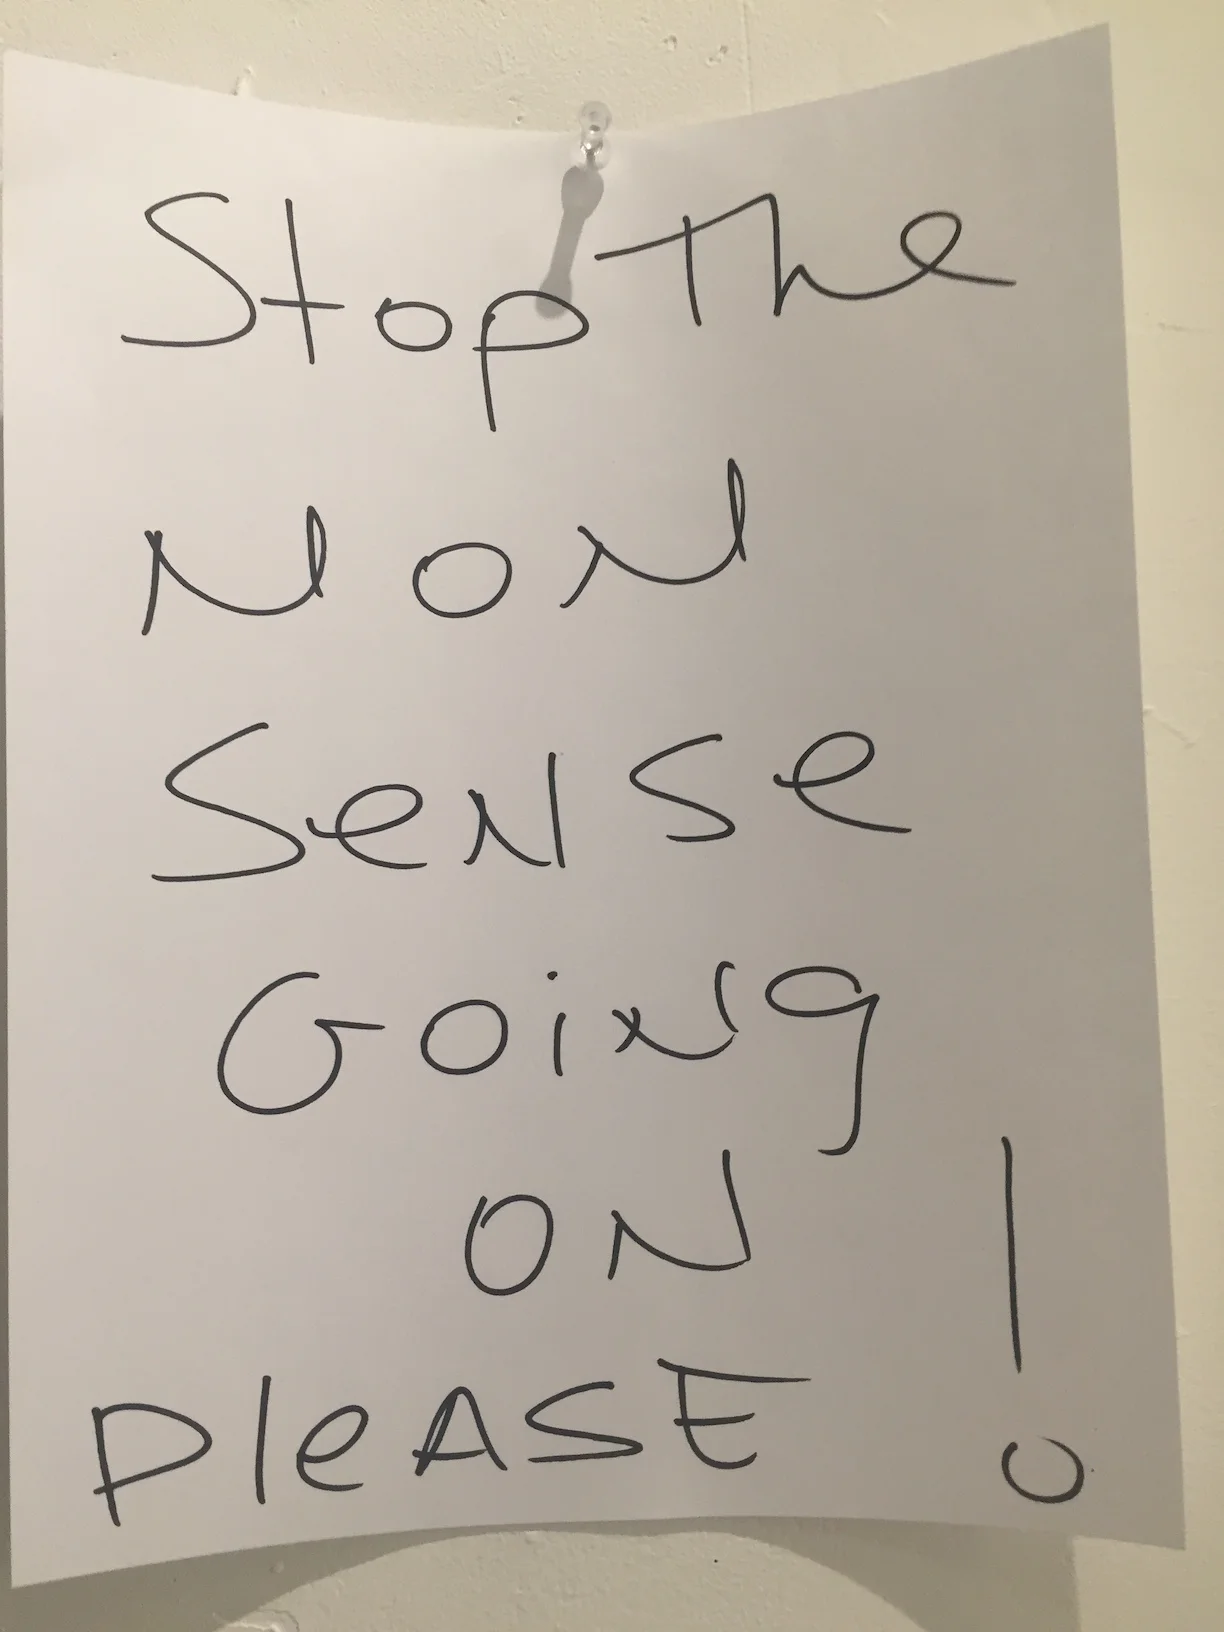 Stop The
NON
SeNSe
GoiNg
ON
PleASE !